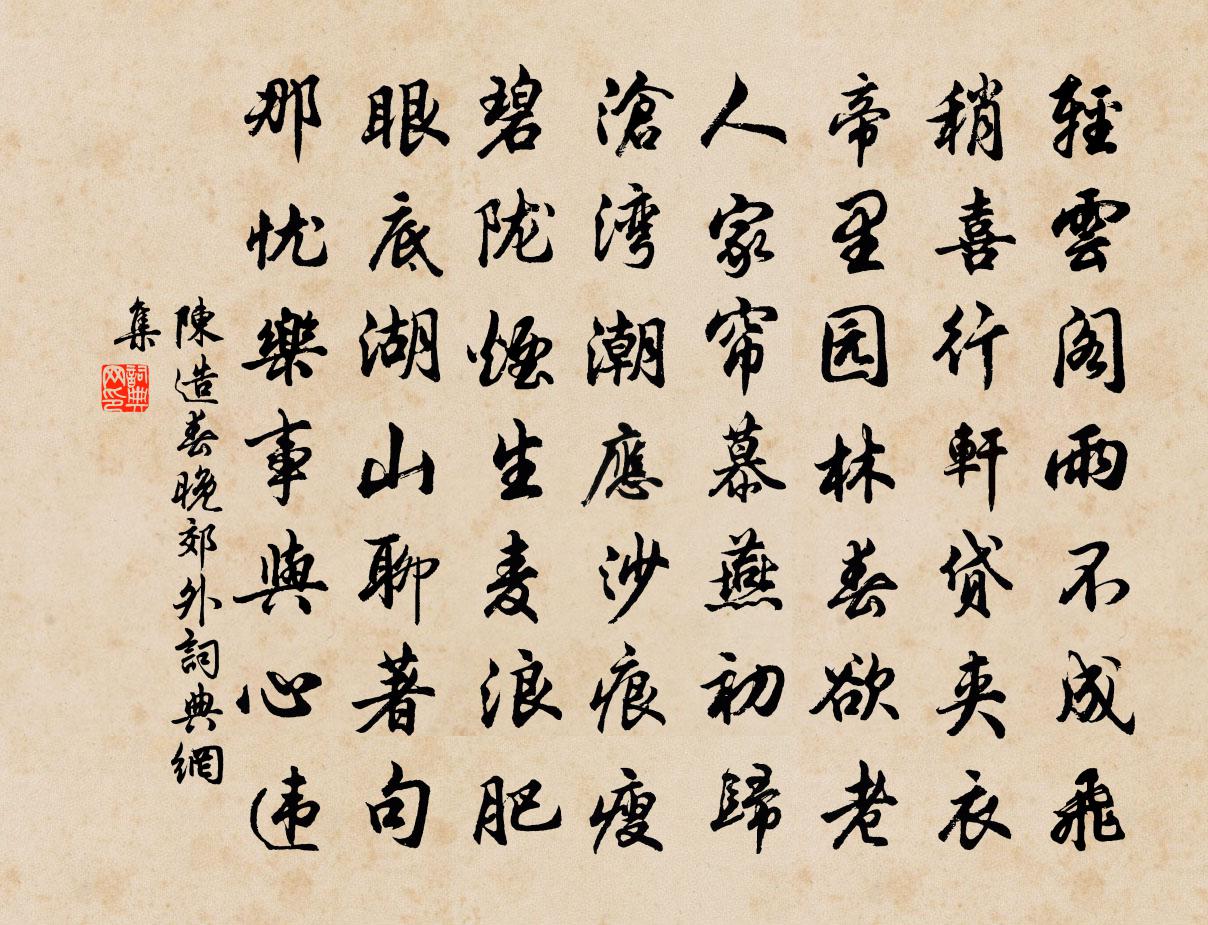 輕雲閣雨不成飛
稍喜行軒貸夾衣
帝里园林春欲老
人家帘慕燕初歸
滄湾潮應沙痕瘦
碧陇煙生麦浪肥
眼底湖山聊著句
那忧樂事與心违
陳造春晚郊外詞典網
集
詞典
网印